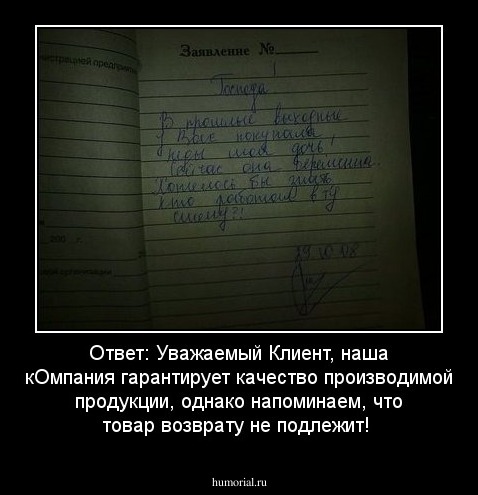 истрацией предприятия
Заявление №
Господа!
В прошлые выходные
у Васе покупала
кеды моя дочь!
Сейчас она беременна.
Хотелось бы знать
кто работал в ту
смену?!
200 г.
29.10.08
Ответ: Уважаемый Клиент, наша
кОмпания гарантирует качество производимой
продукции, однако напоминаем, что
товар возврату не подлежит!
humorial.ru